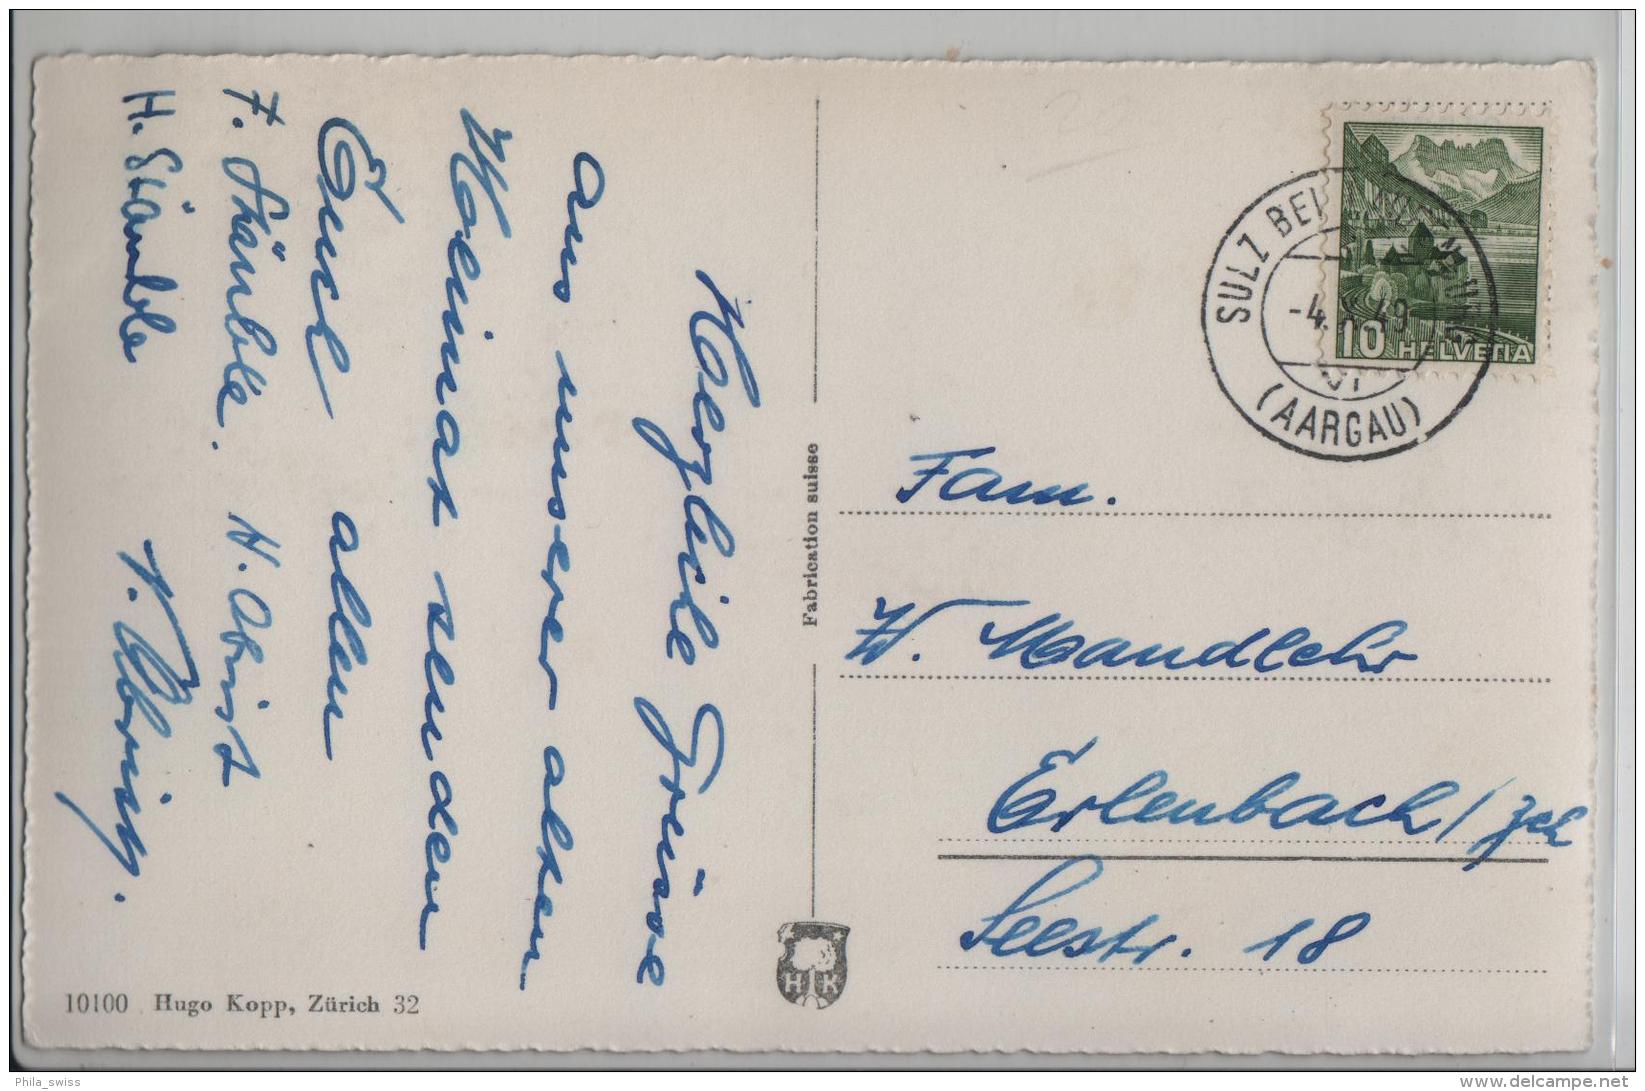 Herzliche Grüsse
aus unserer alten
Heimat senden
Euch allen
F. Stäuble. H. Obrist
H. Stäuble
Fabrication suisse
H K
10100 Hugo Kopp, Zürich 32
SULZ BEI
(AARGAU)
-4. X. 49
10 HELVETIA
Fam.
W. Mandlehr
Erlenbach / Zch
Seestr. 18
Phila_swiss
delcampe.net